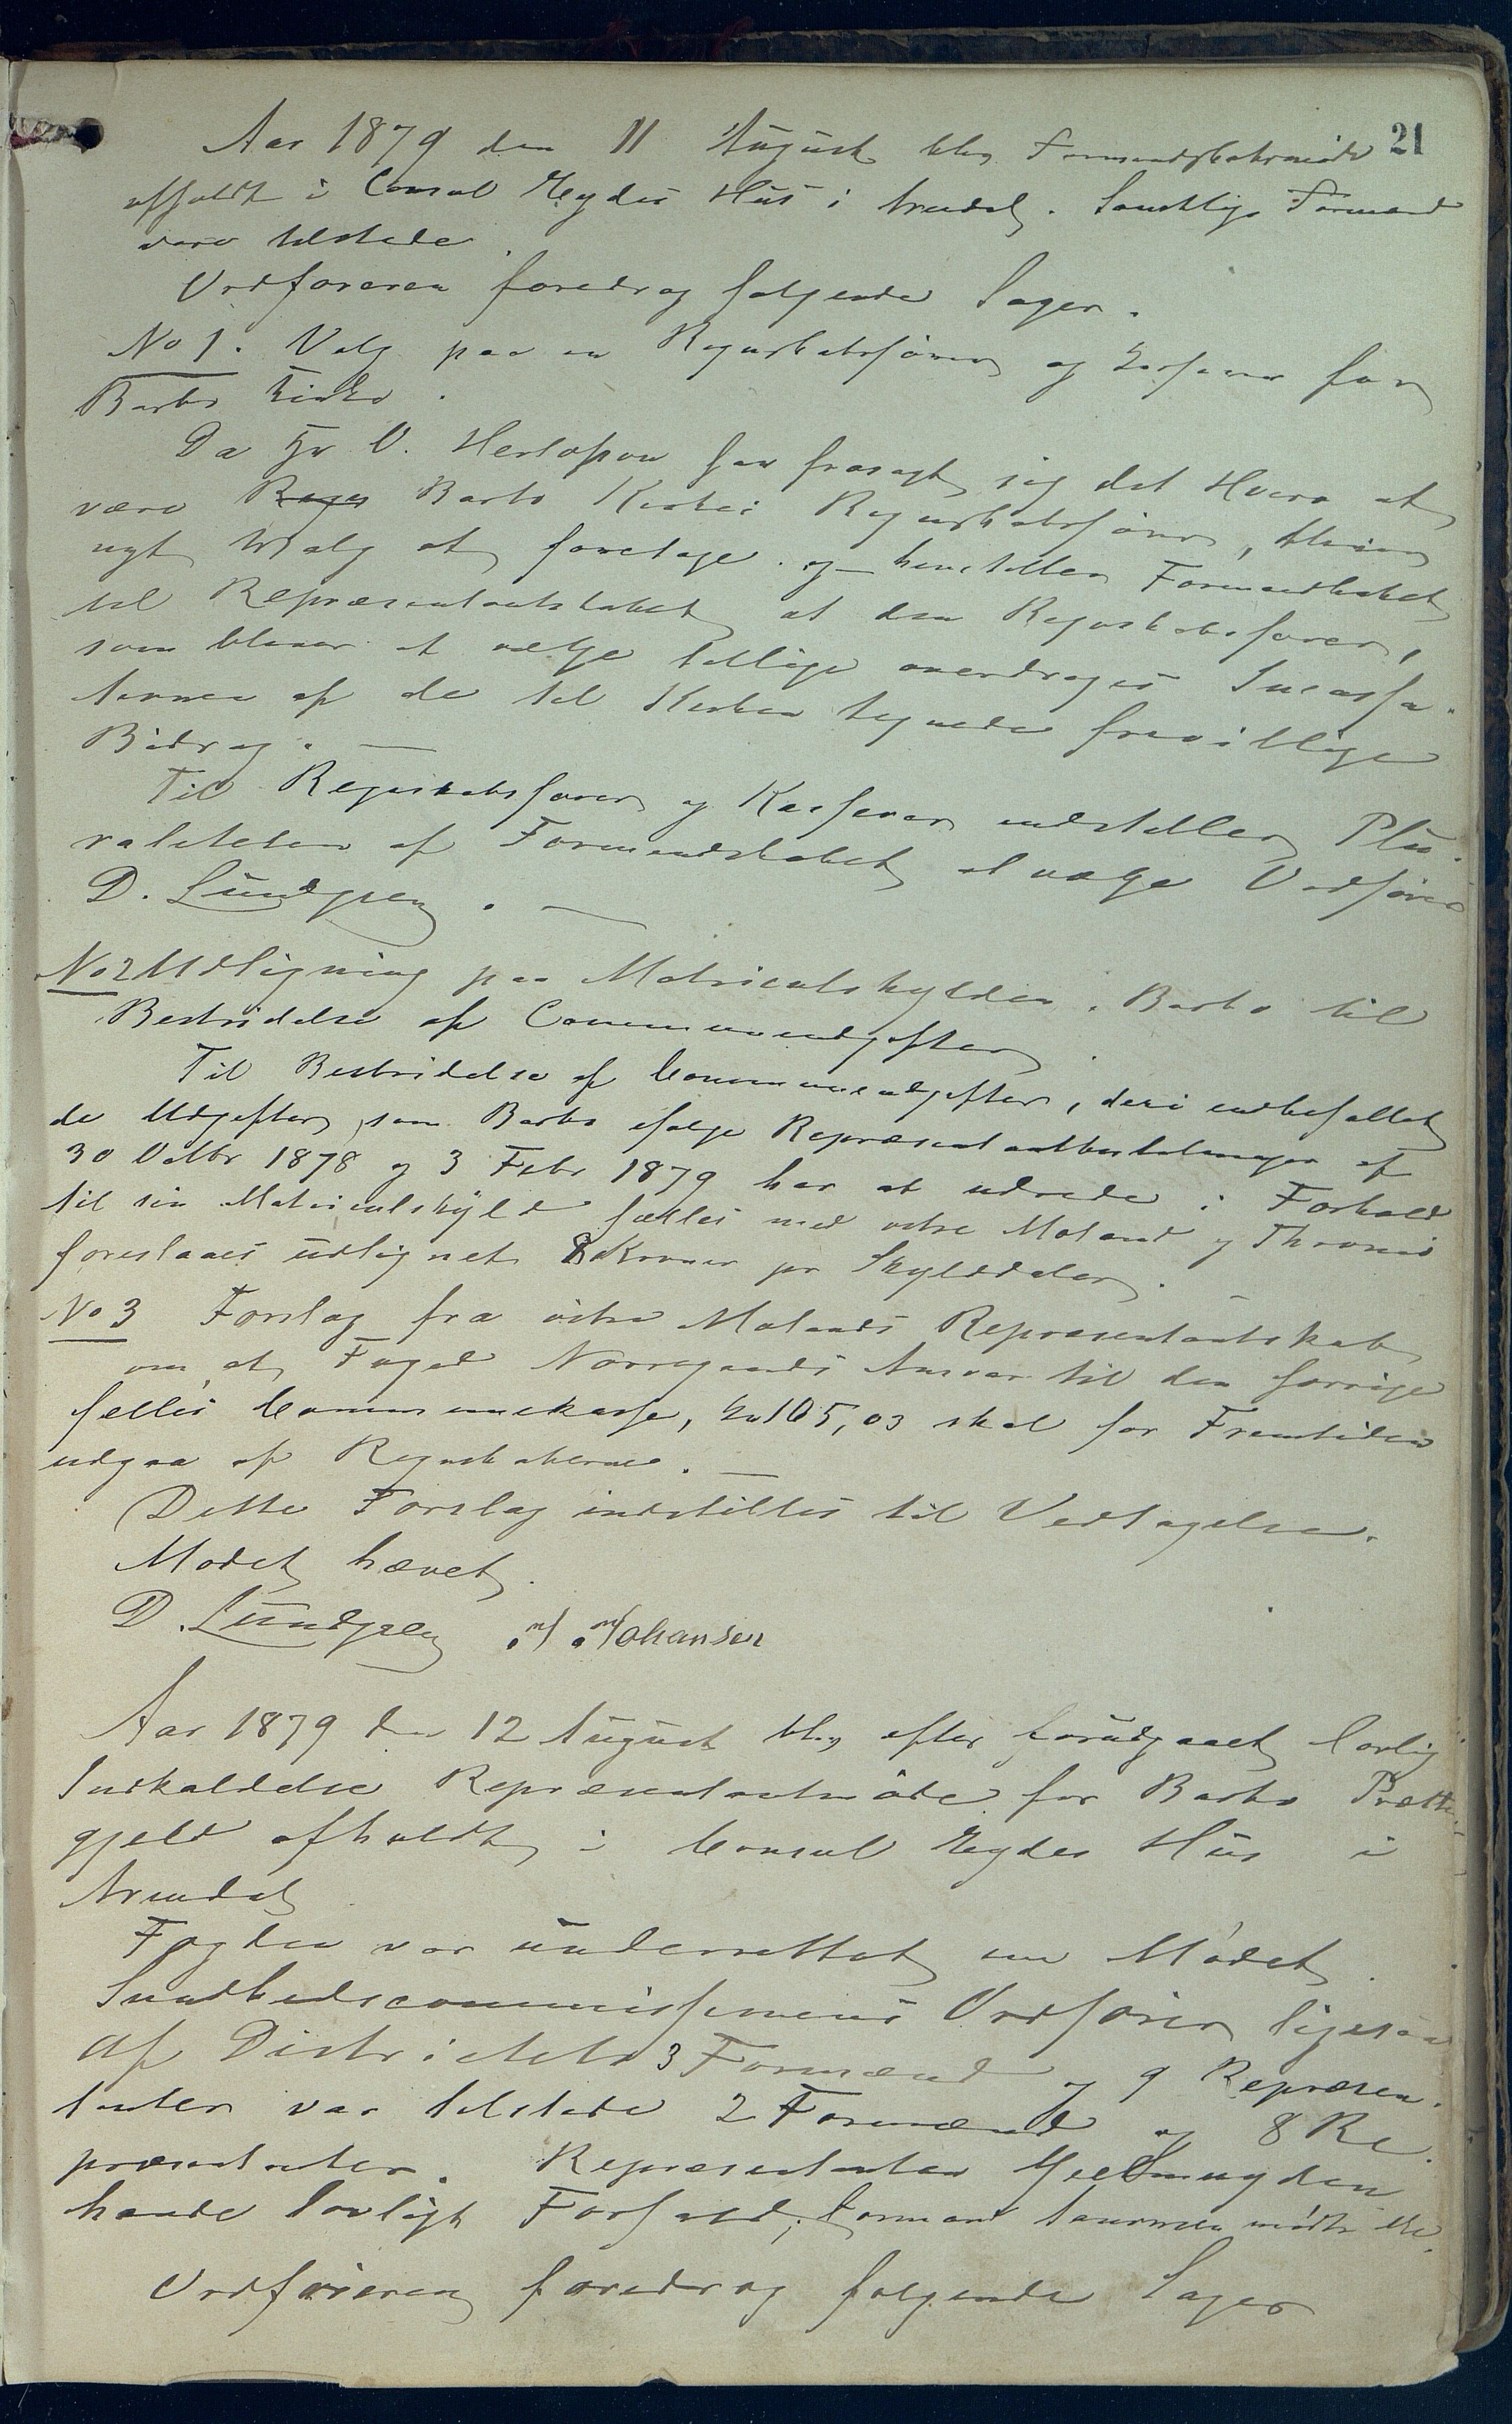 21
Aar 1879 den 11 August blev Formandskabsmøde
afholdt i Consul Eydes Hus i Arendal. Samtlige Formænd
vare tilstede.
Ordføreren foredrog følgende Sager.
No 1. Valg paa en Regnskabsfører og Kasserer for
Barbo Kirke.
Da Hr O. Herlofson har frasagt sig det Hverv at
være Regns Barbo Kirkes Regnskabsfører, bliver
nyt Valg at foretage og henstiller Formandskabet
til Repræsentantskabet at den Regnskabsfører,
som bliver at vælge tillige overdrages Incassa-
tionen af de til Kirken tegnede frivillige
Bidrag. —
Til Regnskabsfører og Kasserer indstiller Plu-
raliteten af Formandskabet at vælge Ordfører
D. Lundgren. —
No 2 Udligning paa Matriculskylden i Barbo til
Bestridelse af Communeudgifter.
Til Bestridelse af Communeudgifter, deri indbefattet
de Udgifter, som Barbo ifølge Repræsentantbeslutninger af
30 Octbr 1878 og 3 Febr 1879 har at udrede i Forhold
til sin Matriculskyld fælles med østre Moland og Thromø
foreslaaes udlignet 8 Kroner pr Skylddaler.
No 3 Forslag fra østre Molands Repræsentantskab
om, at Foged Nørregaards Ansvar til den forrige
fælles Communekasse, Kr 105,03 skal for Fremtiden
udgaa af Regnskaberne. —
Dette Forslag indstilles til Vedtagelse.
Mødet hævet.
D. Lundgren J. Johansen
Aar 1879 den 12 August blev efter forudgaaet lovlig
Indkaldelse Repræsentantmøde for Barbo Præste-
gjeld afholdt i Consul Eydes Hus i
Arendal
Fogden var underrettet om Mødet.
Sundhedscommissionens Ordfører ligesaa
Af Districtets 3 Formænd og 9 Repræsen-
tanter var tilstede 2 Formænd og 8 Re-
præsentanter. Repræsentanten
havde lovligt Forfald; Formand mødte ikke.
Ordføreren foredrog følgende Sager